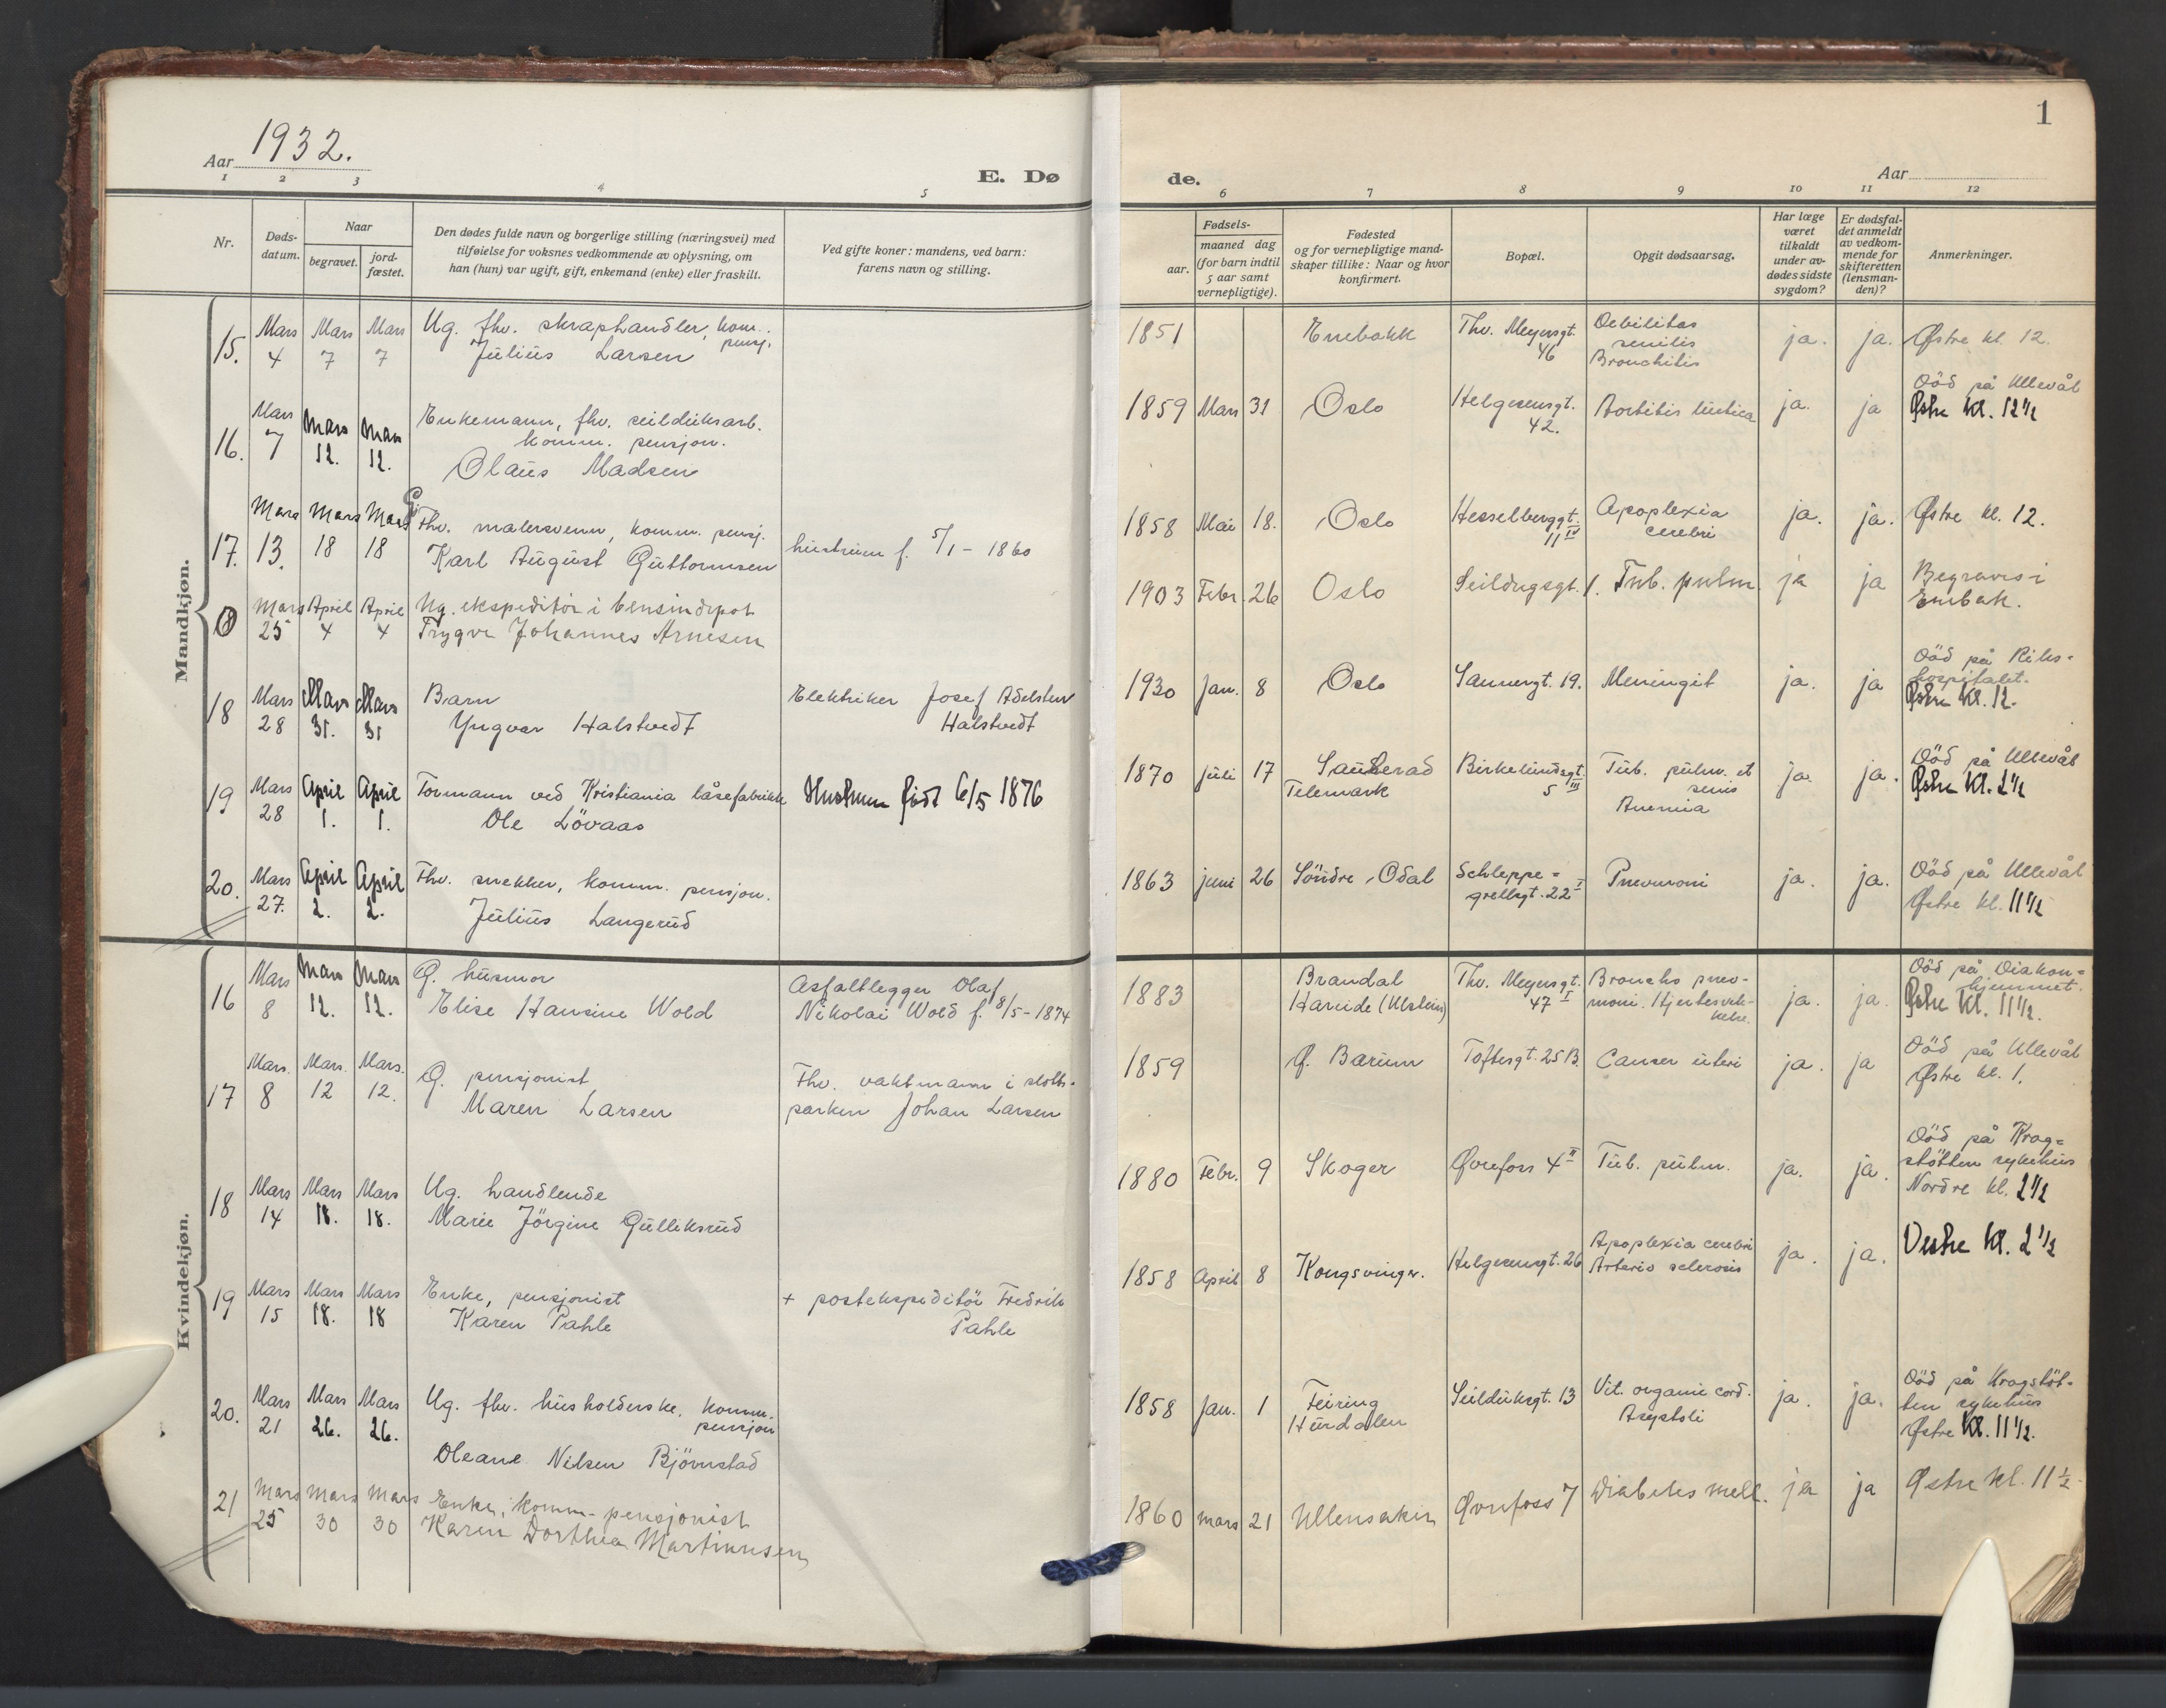 Aar 1932.
E. Dø
1 2 3 4 5
Nr.
Døds-
datum.
Naar
begravet.
jord-
fæstet.
Den dødes fulde navn og borgerlige stilling (næringsvei) med
tilføielse for voksnes vedkommende av oplysning, om
han (hun) var ugift, gift, enkemand (enke) eller fraskilt.
Ved gifte koner: mandens, ved barn:
farens navn og stilling.
Mandkjøn.
15. Mars 4 Mars 7 Mars 7
Ug. fhv. skraphandler, kom.
pensj.
Julius Larsen
16. Mars 7 Mars 12. Mars 12.
Enkemann, fhv. seilduksarb.
komm. pensjon.
Olaus Madsen
17. Mars 13. Mars 18 Mars 18
G. Fhv. malersvenn, komm. pensj.
Karl August Guttormsen
hustruen f. 5/1 - 1860
0 Mars 25 April 4 April 4
Ug. ekspeditør i bensindepot
Trygve Johannes Arnesen
18 Mars 28 Mars 31. Mars 31
Barn
Yngvar Halstvedt
Elektriker Josef Adelsten
Halstvedt
19 Mars 28 April 1. April 1.
Formann ved Kristiania låsefabrikk
Ole Lövaas
Hustruen født 6/5 1876
20. Mars 27. April 2. April 2.
Fhv. snekker, komm. pensjon.
Julius Langerud
Kvindekjøn.
16 Mars 8 Mars 12. Mars 12.
G. husmor
Elise Hansine Wold
Asfaltlegger Olaf
Nikolai Wold f. 8/5 - 1874
17 Mars. 8 Mars. 12 Mars. 12.
G. pensjonist
Maren Larsen
Fhv. vaktmann i slotts-
parken Johan Larsen
18 Mars 14 Mars 18. Mars 18.
Ug. handlende
Marie Jörgine Gulliksrud
19 Mars 15 Mars 18. Mars 18
Enke, pensjonist
Karen Pahle
+ postekspeditör Fredrik
Pahle
20. Mars 21 Mars 26. Mars 26.
Ug. fhv. husholderske, komm.
pensjon
Oleane Nilsen Björnstad
21 Mars 25 Mars 30 Mars 30
Enke, komm. pensjonist
Karen Dorthea Martinusen
1
de.
Aar
6 7 8 9 10 11 12
Fødsels-
aar.
maaned dag
(for barn indtil
5 aar samt
vernepligtige).
Fødested
og for vernepligtige mand-
skaper tillike: Naar og hvor
konfirmert.
Bopæl.
Opgit dødsaarsag.
Har læge
været
tilkaldt
under av-
dødes sidste
sygdom?
Er dødsfal-
det anmeldt
av vedkom-
mende for
skifteretten
(lensman-
den)?
Anmerkninger.
1851 Enebakk
Thv. Meyersgt.
46
Debilitas
senilis
Bronchitis
ja. ja. Østre kl. 12.
1859 Mars 31 Oslo
Helgesensgt.
42.
Aortitis luetica
ja. ja
Död på Ullevål
Østre kl. 12 1/2
1858 Mai 18. Oslo
Hesselberggt.
11 IV
Apoplexia
cerebri
ja. ja. Østre kl. 12.
1903 Febr. 26 Oslo Seildugsgt. 1. Tub. pulm. ja ja
Begraves i
Enebak.
1930 Jan. 8 Oslo Sannergt. 19. Meningit ja. ja
Död på Riks-
hospitalet.
Østre kl. 12.
1870 Juli 17
Sauherad
Telemark
Birkelundsgt.
5 III
Tub. pulm. et
renis
Anemia
ja. ja.
Död på Ullevål
Østre kl. 2 1/2
1863 juni 26 Söndre Odal
Schleppe-
grellsgt. 22 I
Pneumoni ja. ja.
Död på Ullevål
Østre kl. 11 1/2
1883
Brandal
Hareide (Ulstein)
Thv. Meyersgt.
47 I
Broncho pneu-
moni. Hjertesvek-
kelse.
ja. ja.
Död på Diakon-
hjemmet.
Østre kl. 11 1/2.
1859 Ö. Bærum Toftesgt. 25 B. Cancer uteri ja. ja
Död på Ullevål
Østre kl. 1.
1880 Febr. 9 Skoger Øvrefoss 4 II Tub. pulm. ja. ja.
Död på Krog-
stötten sykehus
Nordre kl. 2 1/2
1858 April 8 Kongsvinger. Helgesensgt. 26
Apoplexia cerebri
Arterio sclerosis
ja. ja. Vestre kl. 2 1/2
1858 Jan. 1
Feiring
Hurdalen
Seilduksgt. 13
Vit. organic cord.
Asystoli
ja. ja.
Död på Krogstöt-
ten sykehus
Østre kl. 11 1/2.
1860 mars 21 Ullensaker Øvrefoss 7 Diabetes mell. ja ja Østre kl. 11 1/2